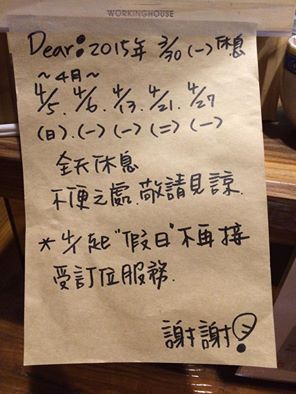 WORKINGHOUSE
Dear: 2015年 3/30 (一) 休息
～4月～
4/5. 4/6. 4/13. 4/21. 4/27
(日). (一) (一) (二) (一)
全天休息
不便之處.敬請見諒.
*4/1起"假日"不再接
受訂位服務.
謝謝!